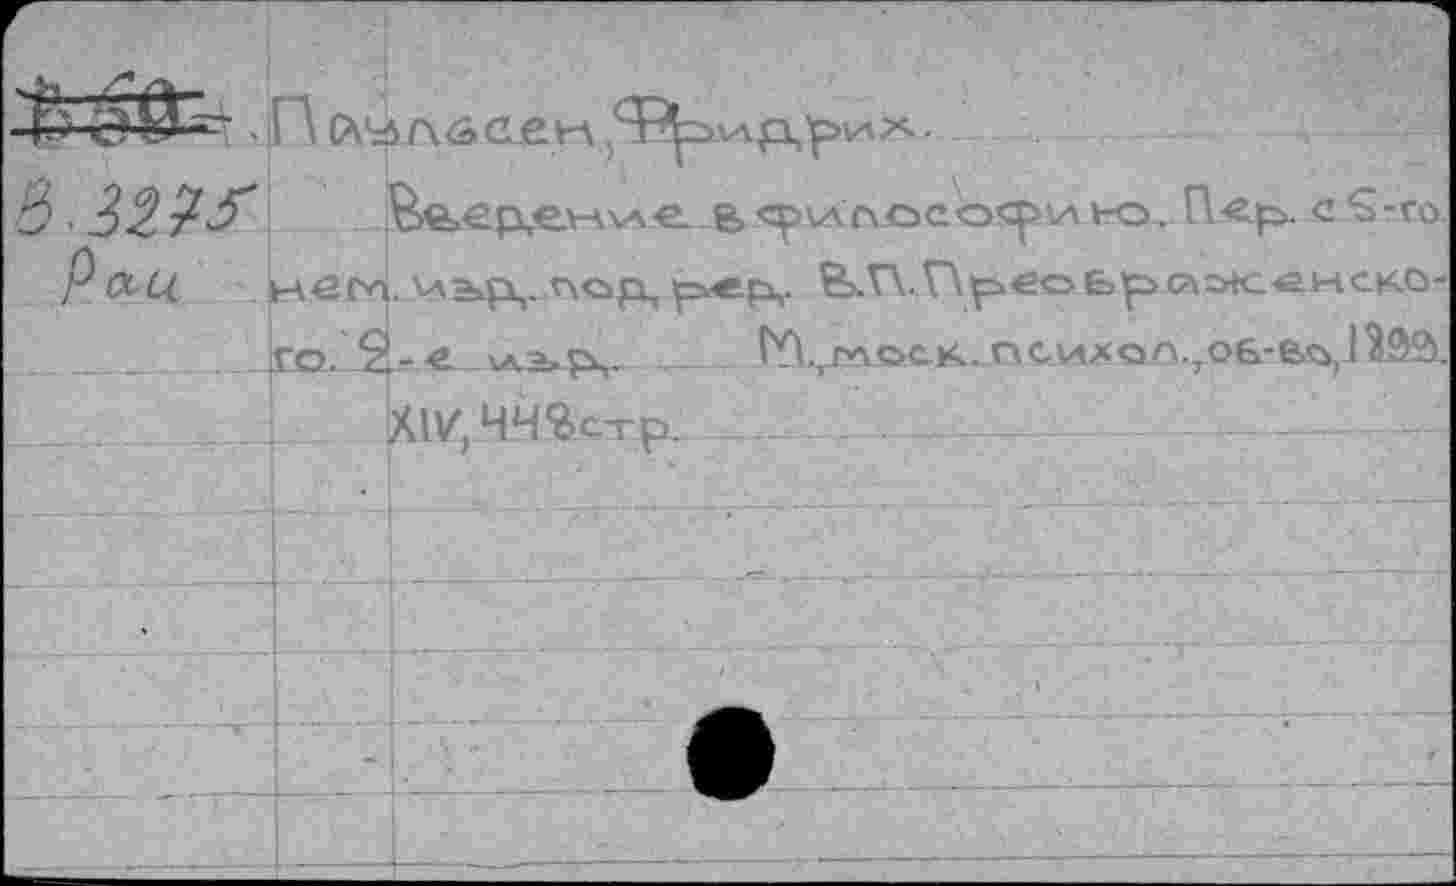 Паульсен, Фридрих.
В.3275
Введение в философию. Пер. с 5-го
Pau
нем. изд. под ред. В.П.Преображенско-
го. 2-е изд. М., моск. психол., об-во, 1899.
XIV, 448 стр.